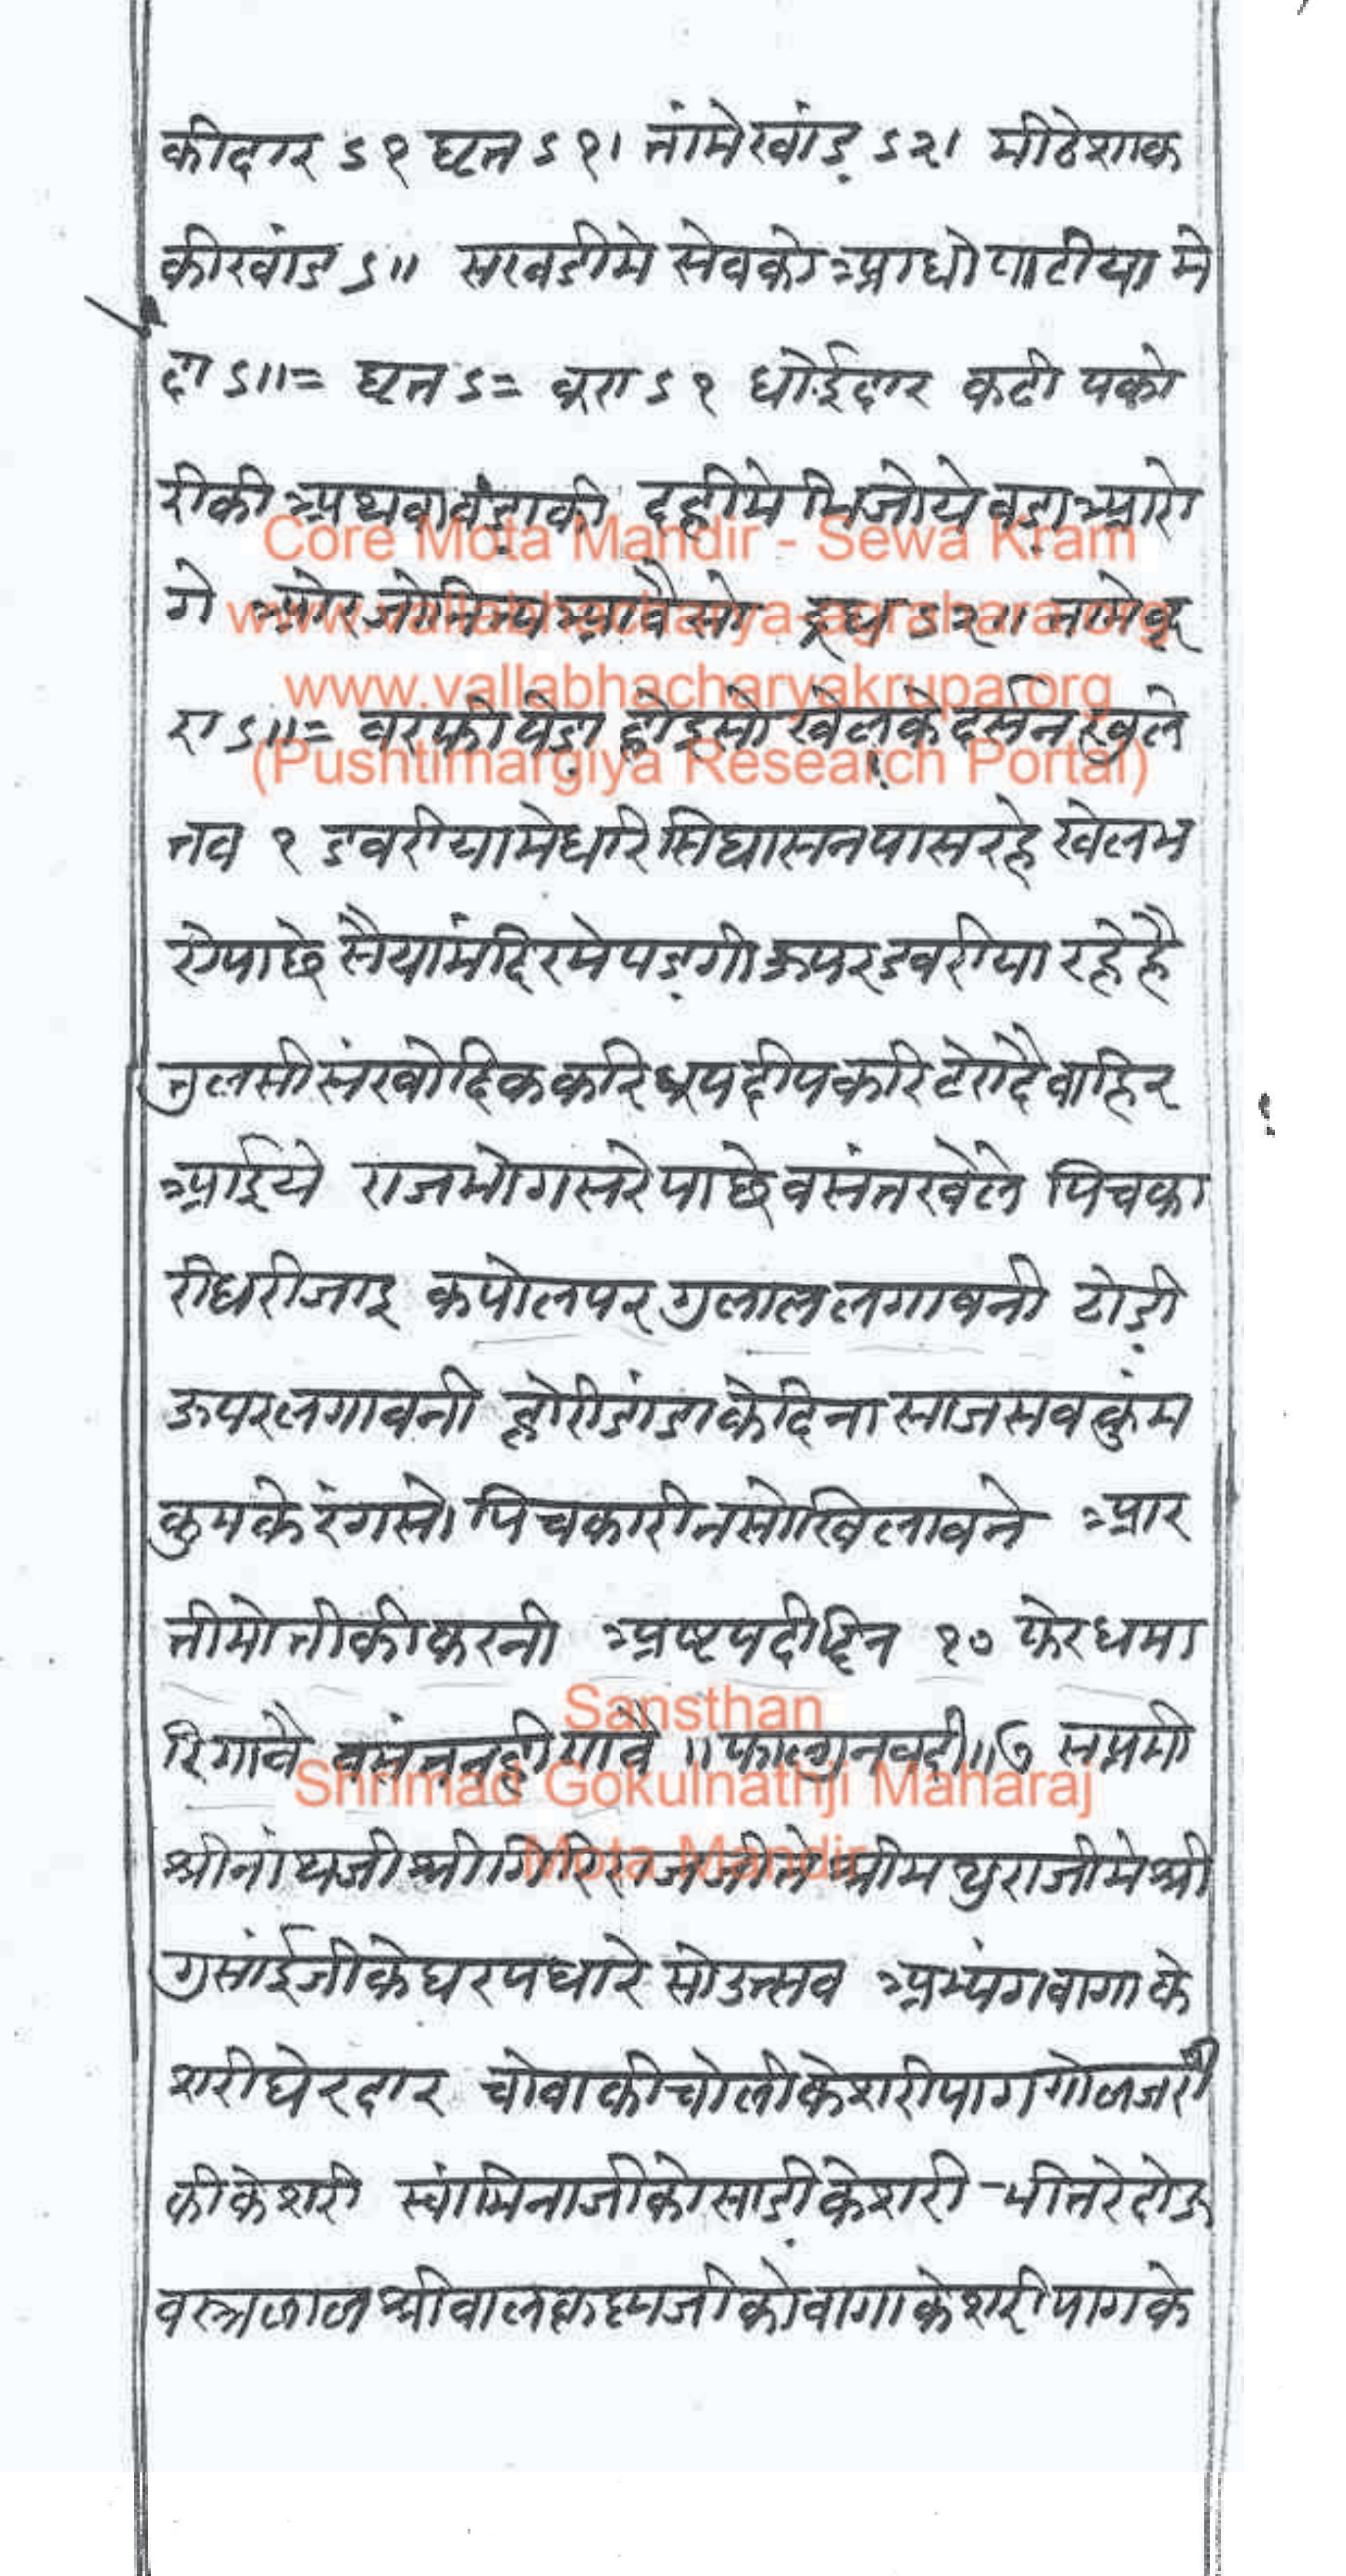 कीदार ऽ१ घृत ऽ१। तांमेखांड़ ऽ२। मीठेशाक
कीखांड ऽ॥ सखडीमे सेवको आधो पाटीया मे
दा ऽ॥= घृत ऽ= बूरा ऽ१ धोईदार कढी पको
रीकी अथवा वंड़ाकी दहीमे भिजोये वड़ा आरो
गे ओर जोनित्य आवैसो दूध ऽ२। तामेबू
रा ऽ॥= बरफी पेड़ा होइसो खेलके दर्सन खुले
तब १ डबरीयामेधरि सिघासनपासरहे खेलभ
रेपाछे सैयामंदिरमे पड़गीऊपरडबरीया रहेहै
तुलसीसंखोदिककरि धूपदीपकरि टेरादै बाहिर
आईये राजभोगसरेपाछे वसंतखेले पिचका
रीधरीजाइ कपोलपर गुलाललगावनी ठोड़ी
ऊपरलगावनी होरीडांडाकेदिना साजसव कुंम
कुमकेरंगसो पिचकारीनसोखिलावने आर
तीमोतीकीकरनी अष्टपदीदिन १० फेरधमा
रिगावै वसंतनहीगावै ॥फाल्गुनवदी॥७ सप्तमी
श्रीनांथजी श्रीगिरिराजजीते श्रीमथुराजीमे श्री
गुसांईजीकेघरपधारे सोउत्सव अभ्यंगवागाके
शरीघेरदार चोवाकीचोलीकेशरीपाग गोळजरी
कीकेशरी स्वांमिनाजीकोसाड़ीकेशरी भीतरेदोऊ
वस्त्रळाळ श्रीवालकृष्णजीकोवागाकेशरीपागके
Core Mota Mandir - Sewa Kram
www.vallabhacharya-agrahara.org
www.vallabhacharyakrupa.org
(Pushtimargiya Research Portal)
Sansthan
Shrimad Gokulnathji Maharaj
Mota Mandir